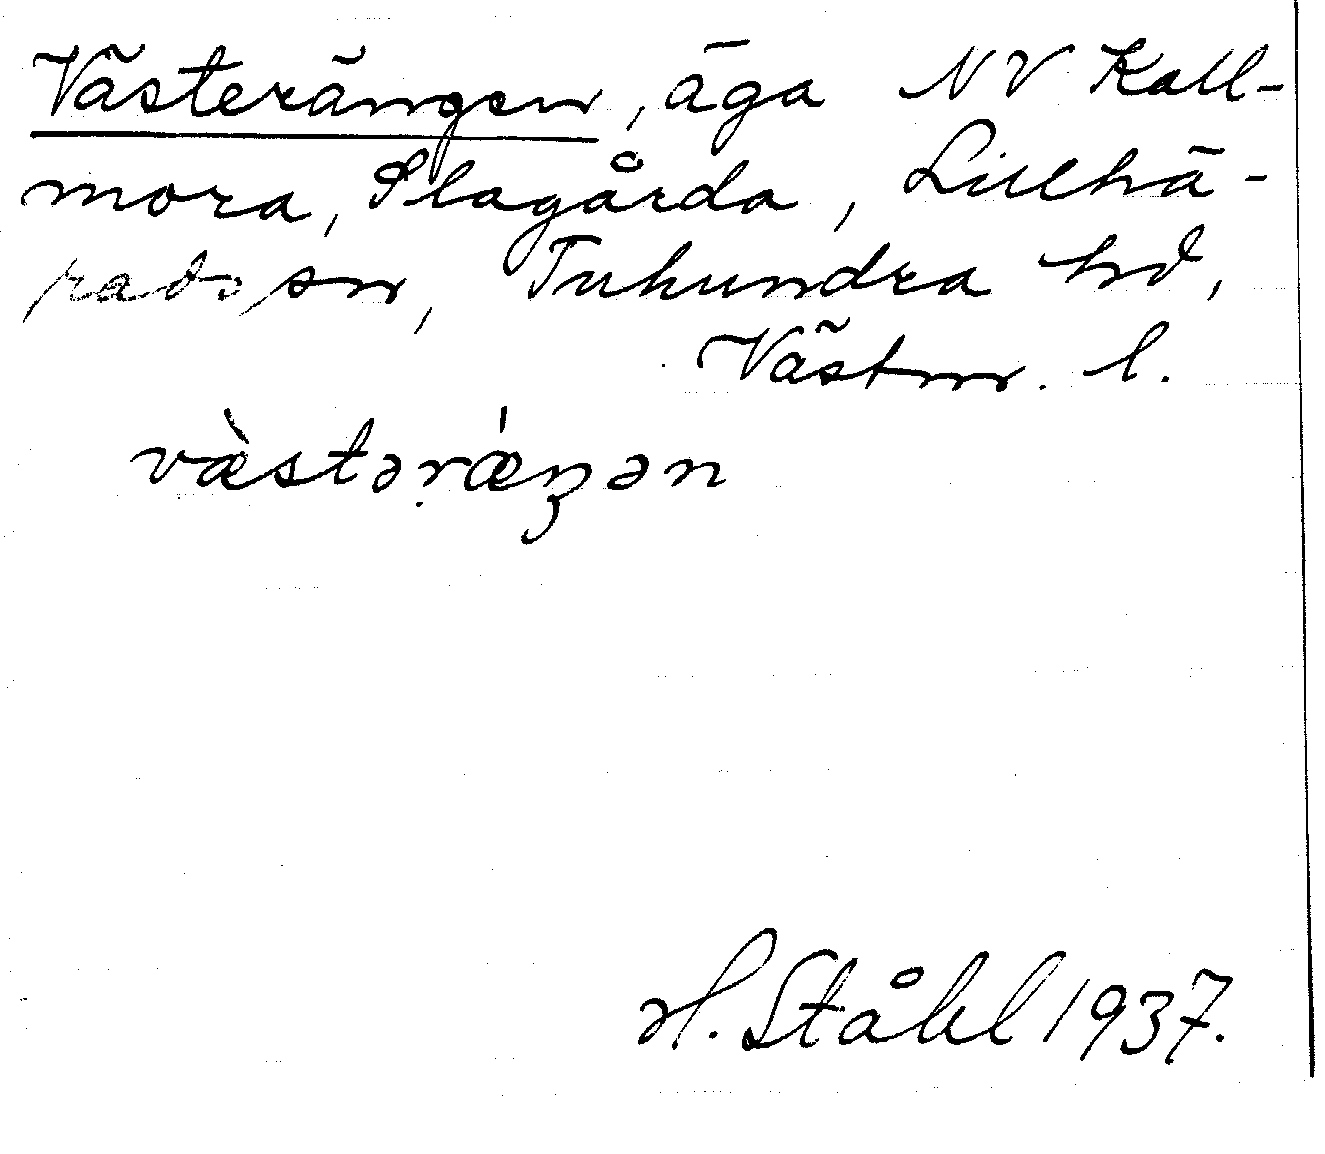 Västerängen, äga NV Kall-
mora, Slagårda, Lillhä-
rads sn, Tuhundra hd,
Västm. l.
væ̀stərǽŋən
H. Ståhl 1937.